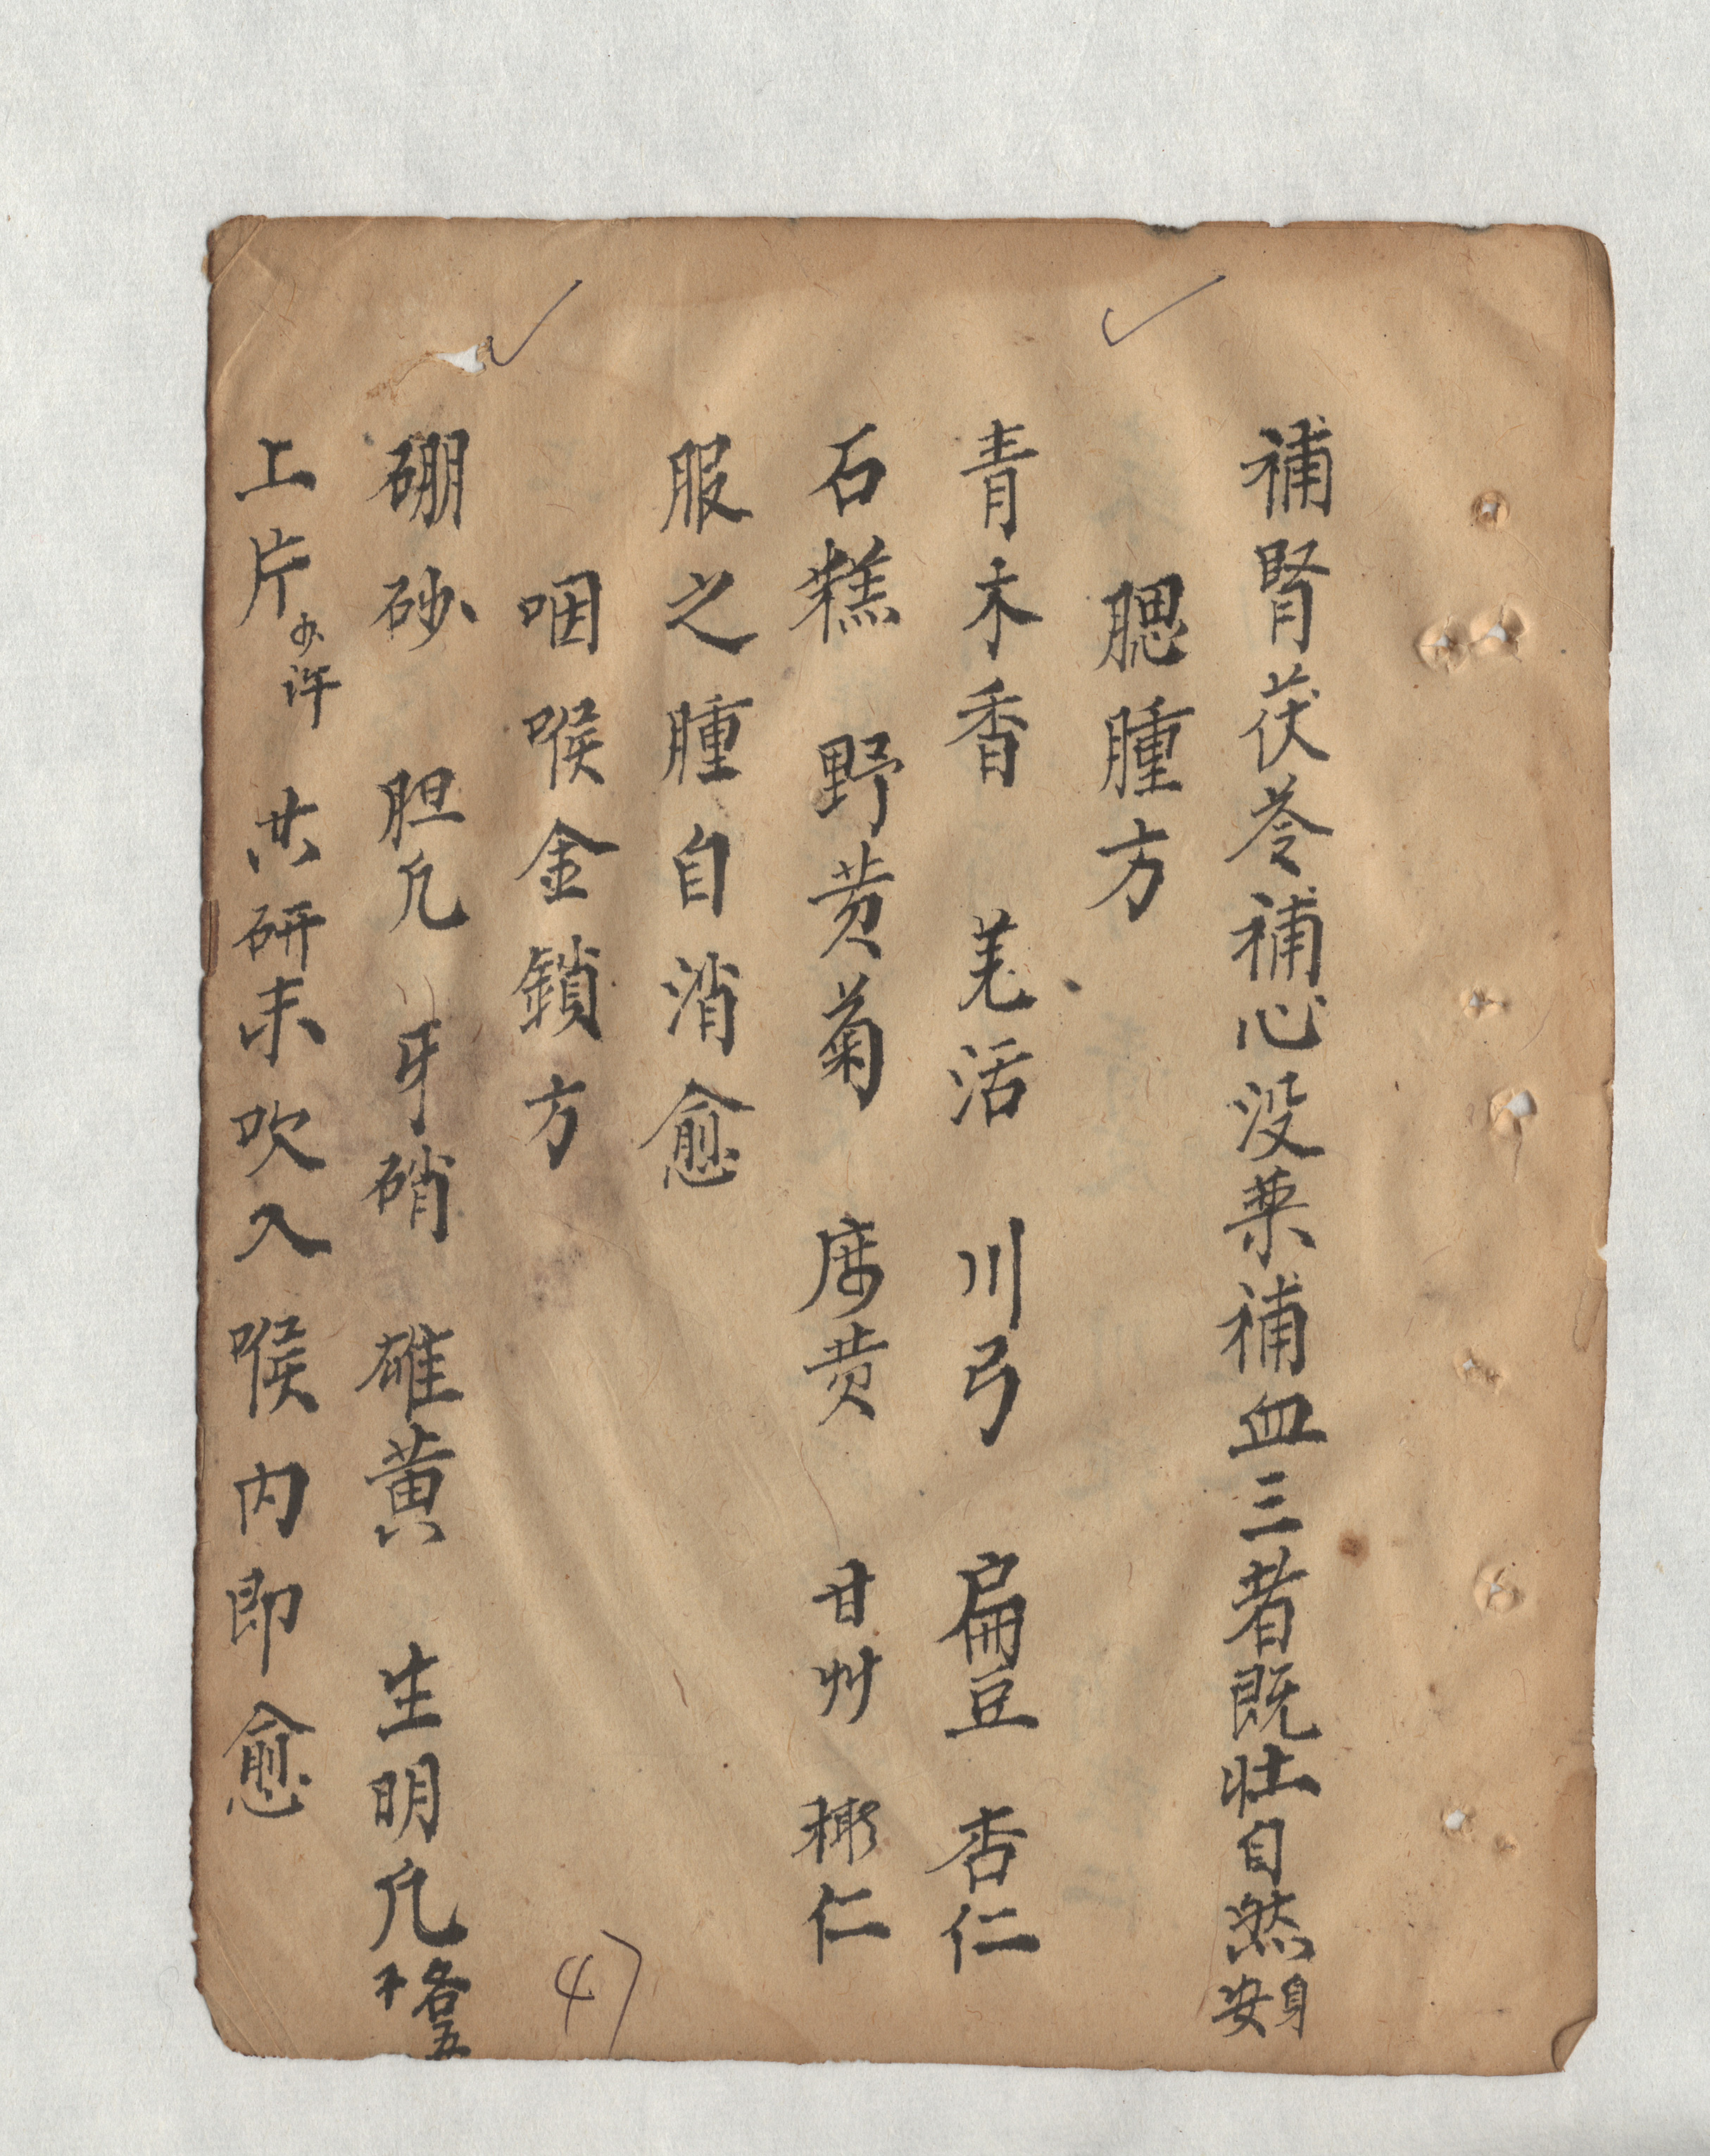 補腎茯苓補心没薬補血三者既壮自然身安
腮腫方
青木香 羌活 川弓 扁豆 杏仁
石糕 野黄菊 黄 甘艸 仁
服之腫自消愈
咽喉金鎖方
硼砂 胆凢 牙硝 雄黄 生明凢各五
上片少许 共研末吹入喉内即愈
47